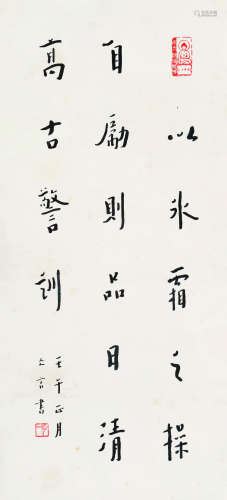 以冰霜之操
自勵則品日清
高古警訓
壬午正月
大言書